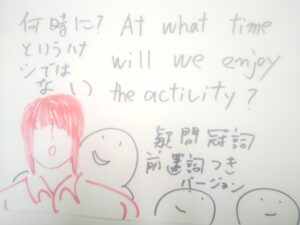 何時に?
というハナ
シでは
ない
At what time
will we enjoy
the activity?
疑問冠詞
前置詞つき
バージョン